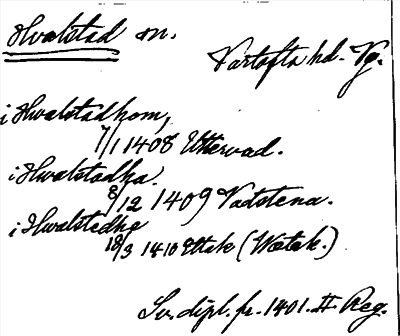 Hvalstad m.
Vartofta hd. Vg.
i Hwalstadhom,
7/1 1408 Uttervad.
i Hwalstadha.
8/12 1409 Vadstena.
i Hwalstedhe
18/3 1410 Ettak (Wætak.)
Sv. dipl. fr. 1401. II Reg.